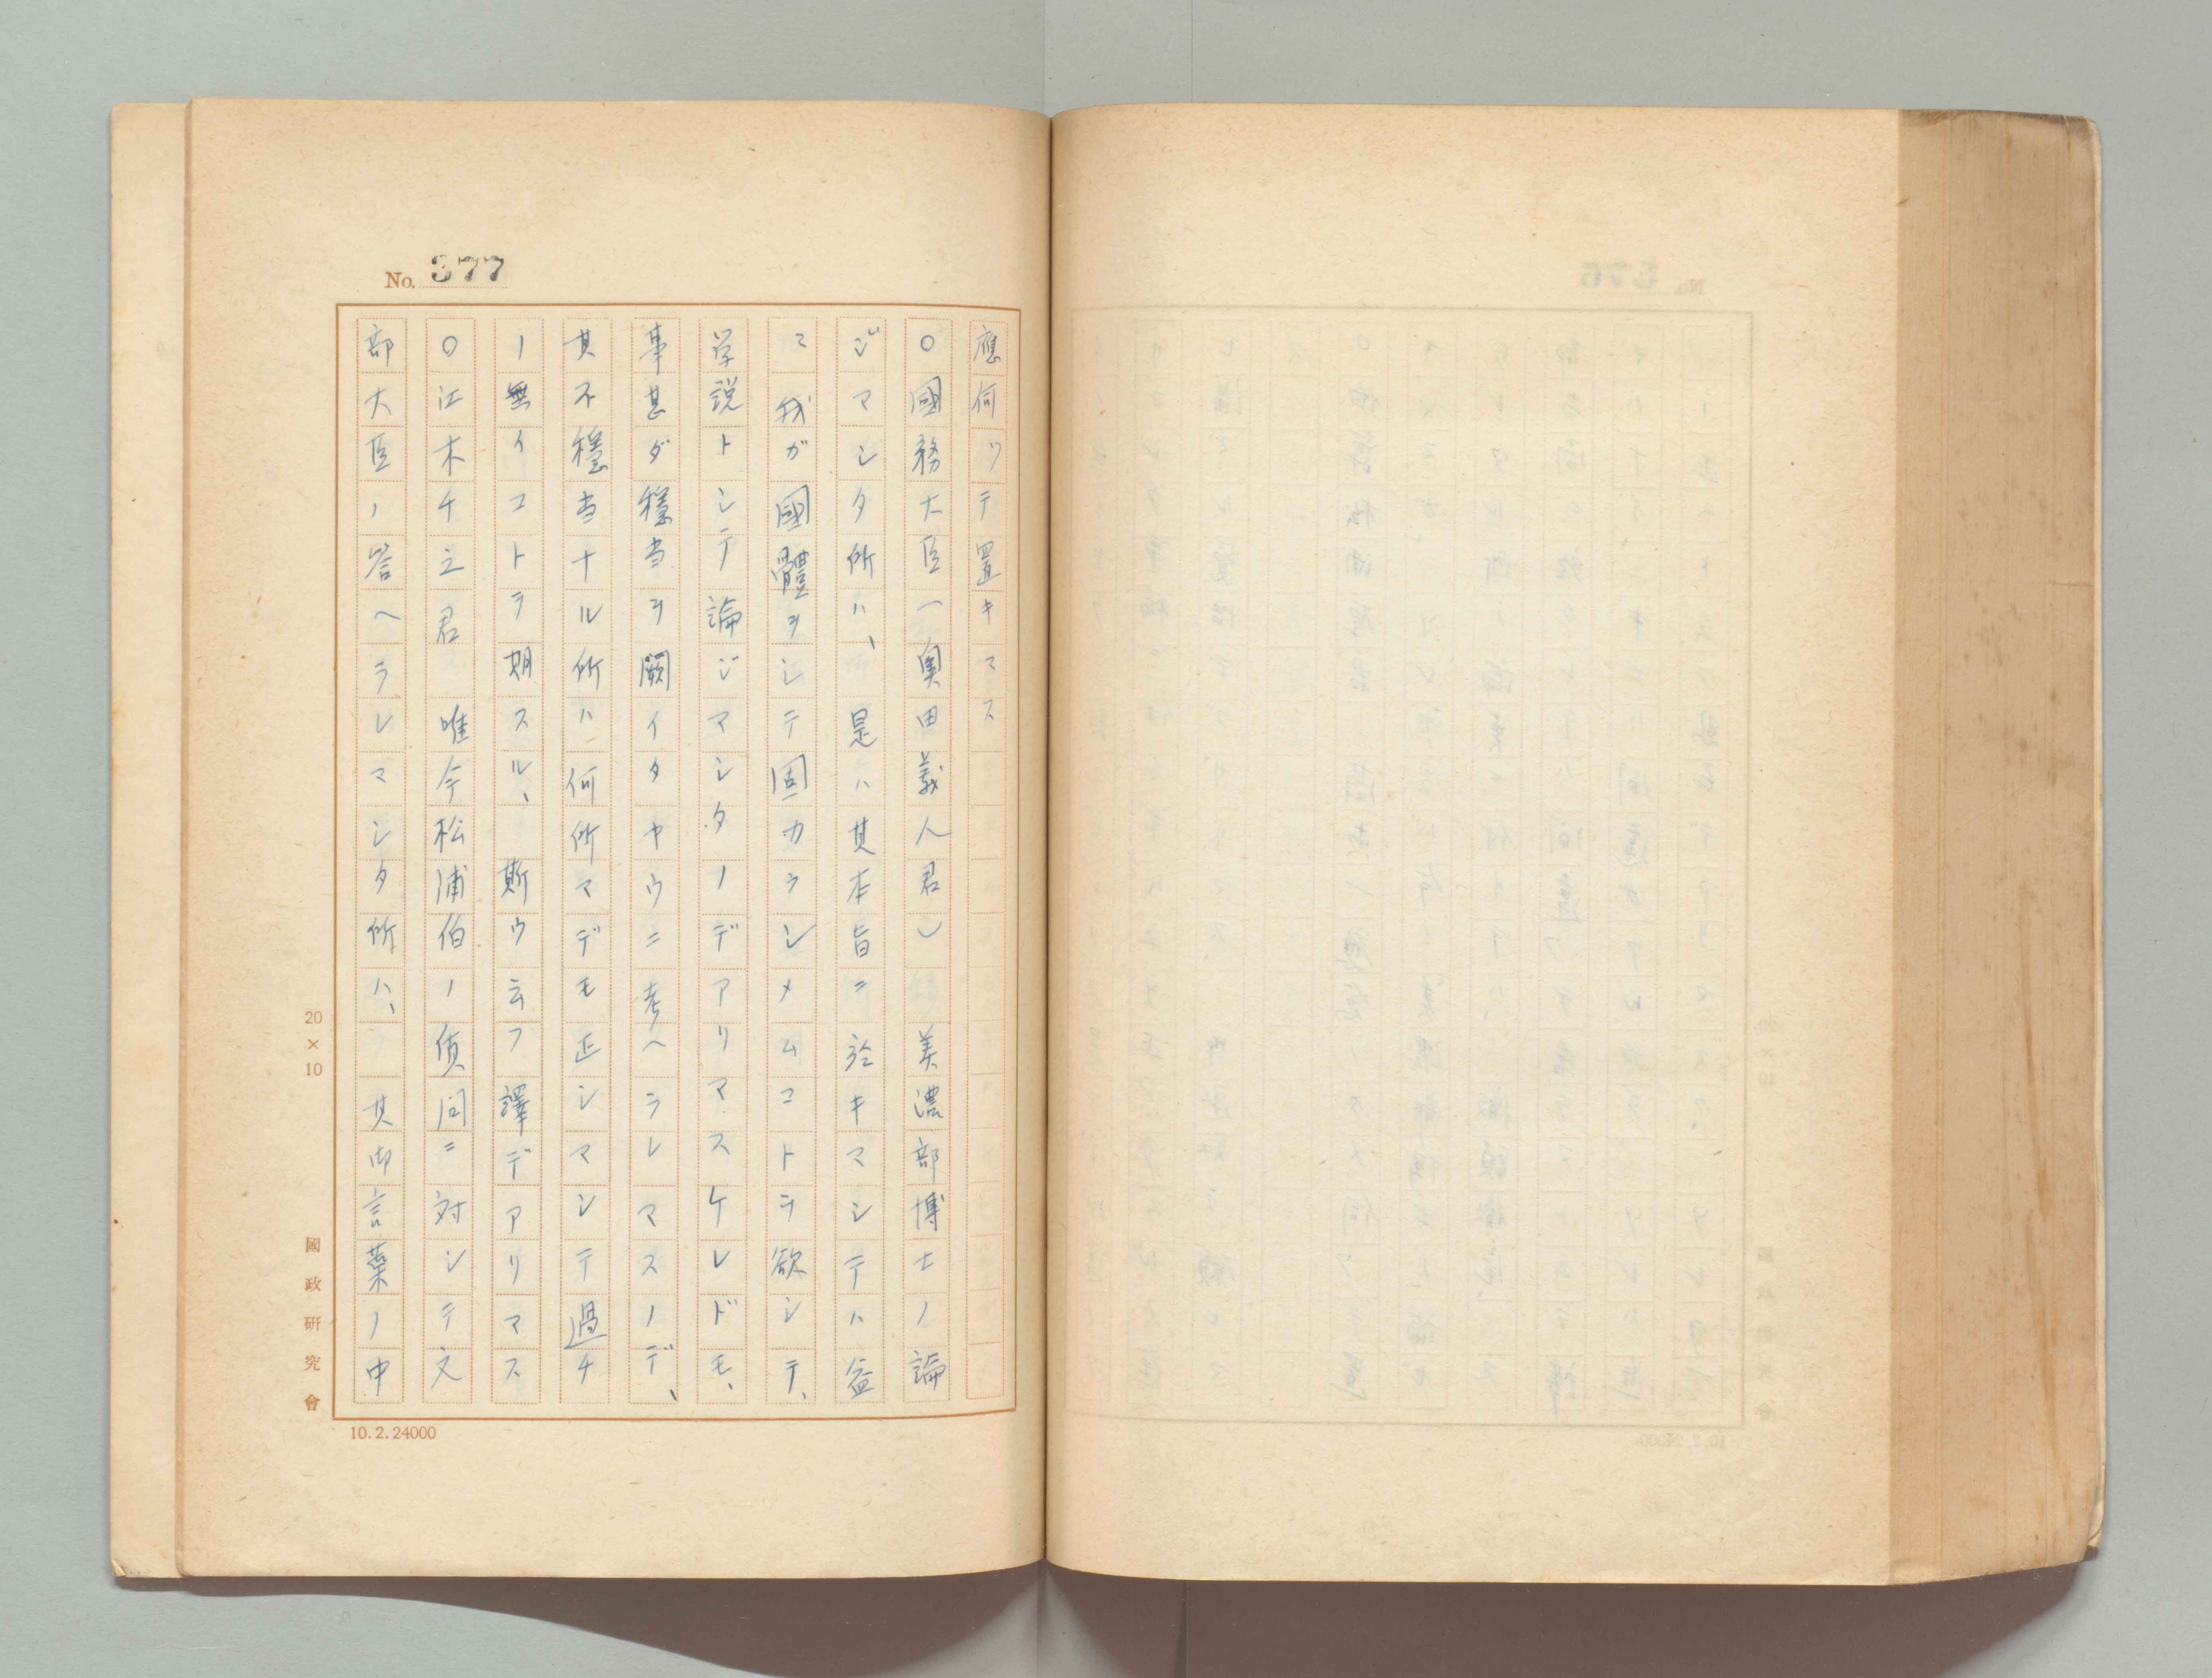 No. 377
應伺ツテ置キマス
○國務大臣(奥田義人君) 美濃部博士ノ論
ジマシタ所ハ、是ハ其本旨ニ於キマシテハ益
〻我ガ國體ヲシテ固カラシメムコトヲ欲シテ、
学説トシテ論ジマシタノデアリマスケレドモ、
事甚ダ穏当ヲ闕イタヤウニ考ヘラレマスノデ、
其不穏当ナル所ハ何所マデモ正シマシテ過チ
ノ無イコトヲ期スル、 斯ウ云フ譯デアリマス
○江木千之君 唯今松浦伯ノ質問ニ対シテ文
部大臣ノ答ヘラレマシタ所ハ、 其御言葉ノ中
20×10
國政研究會
10.2.24000